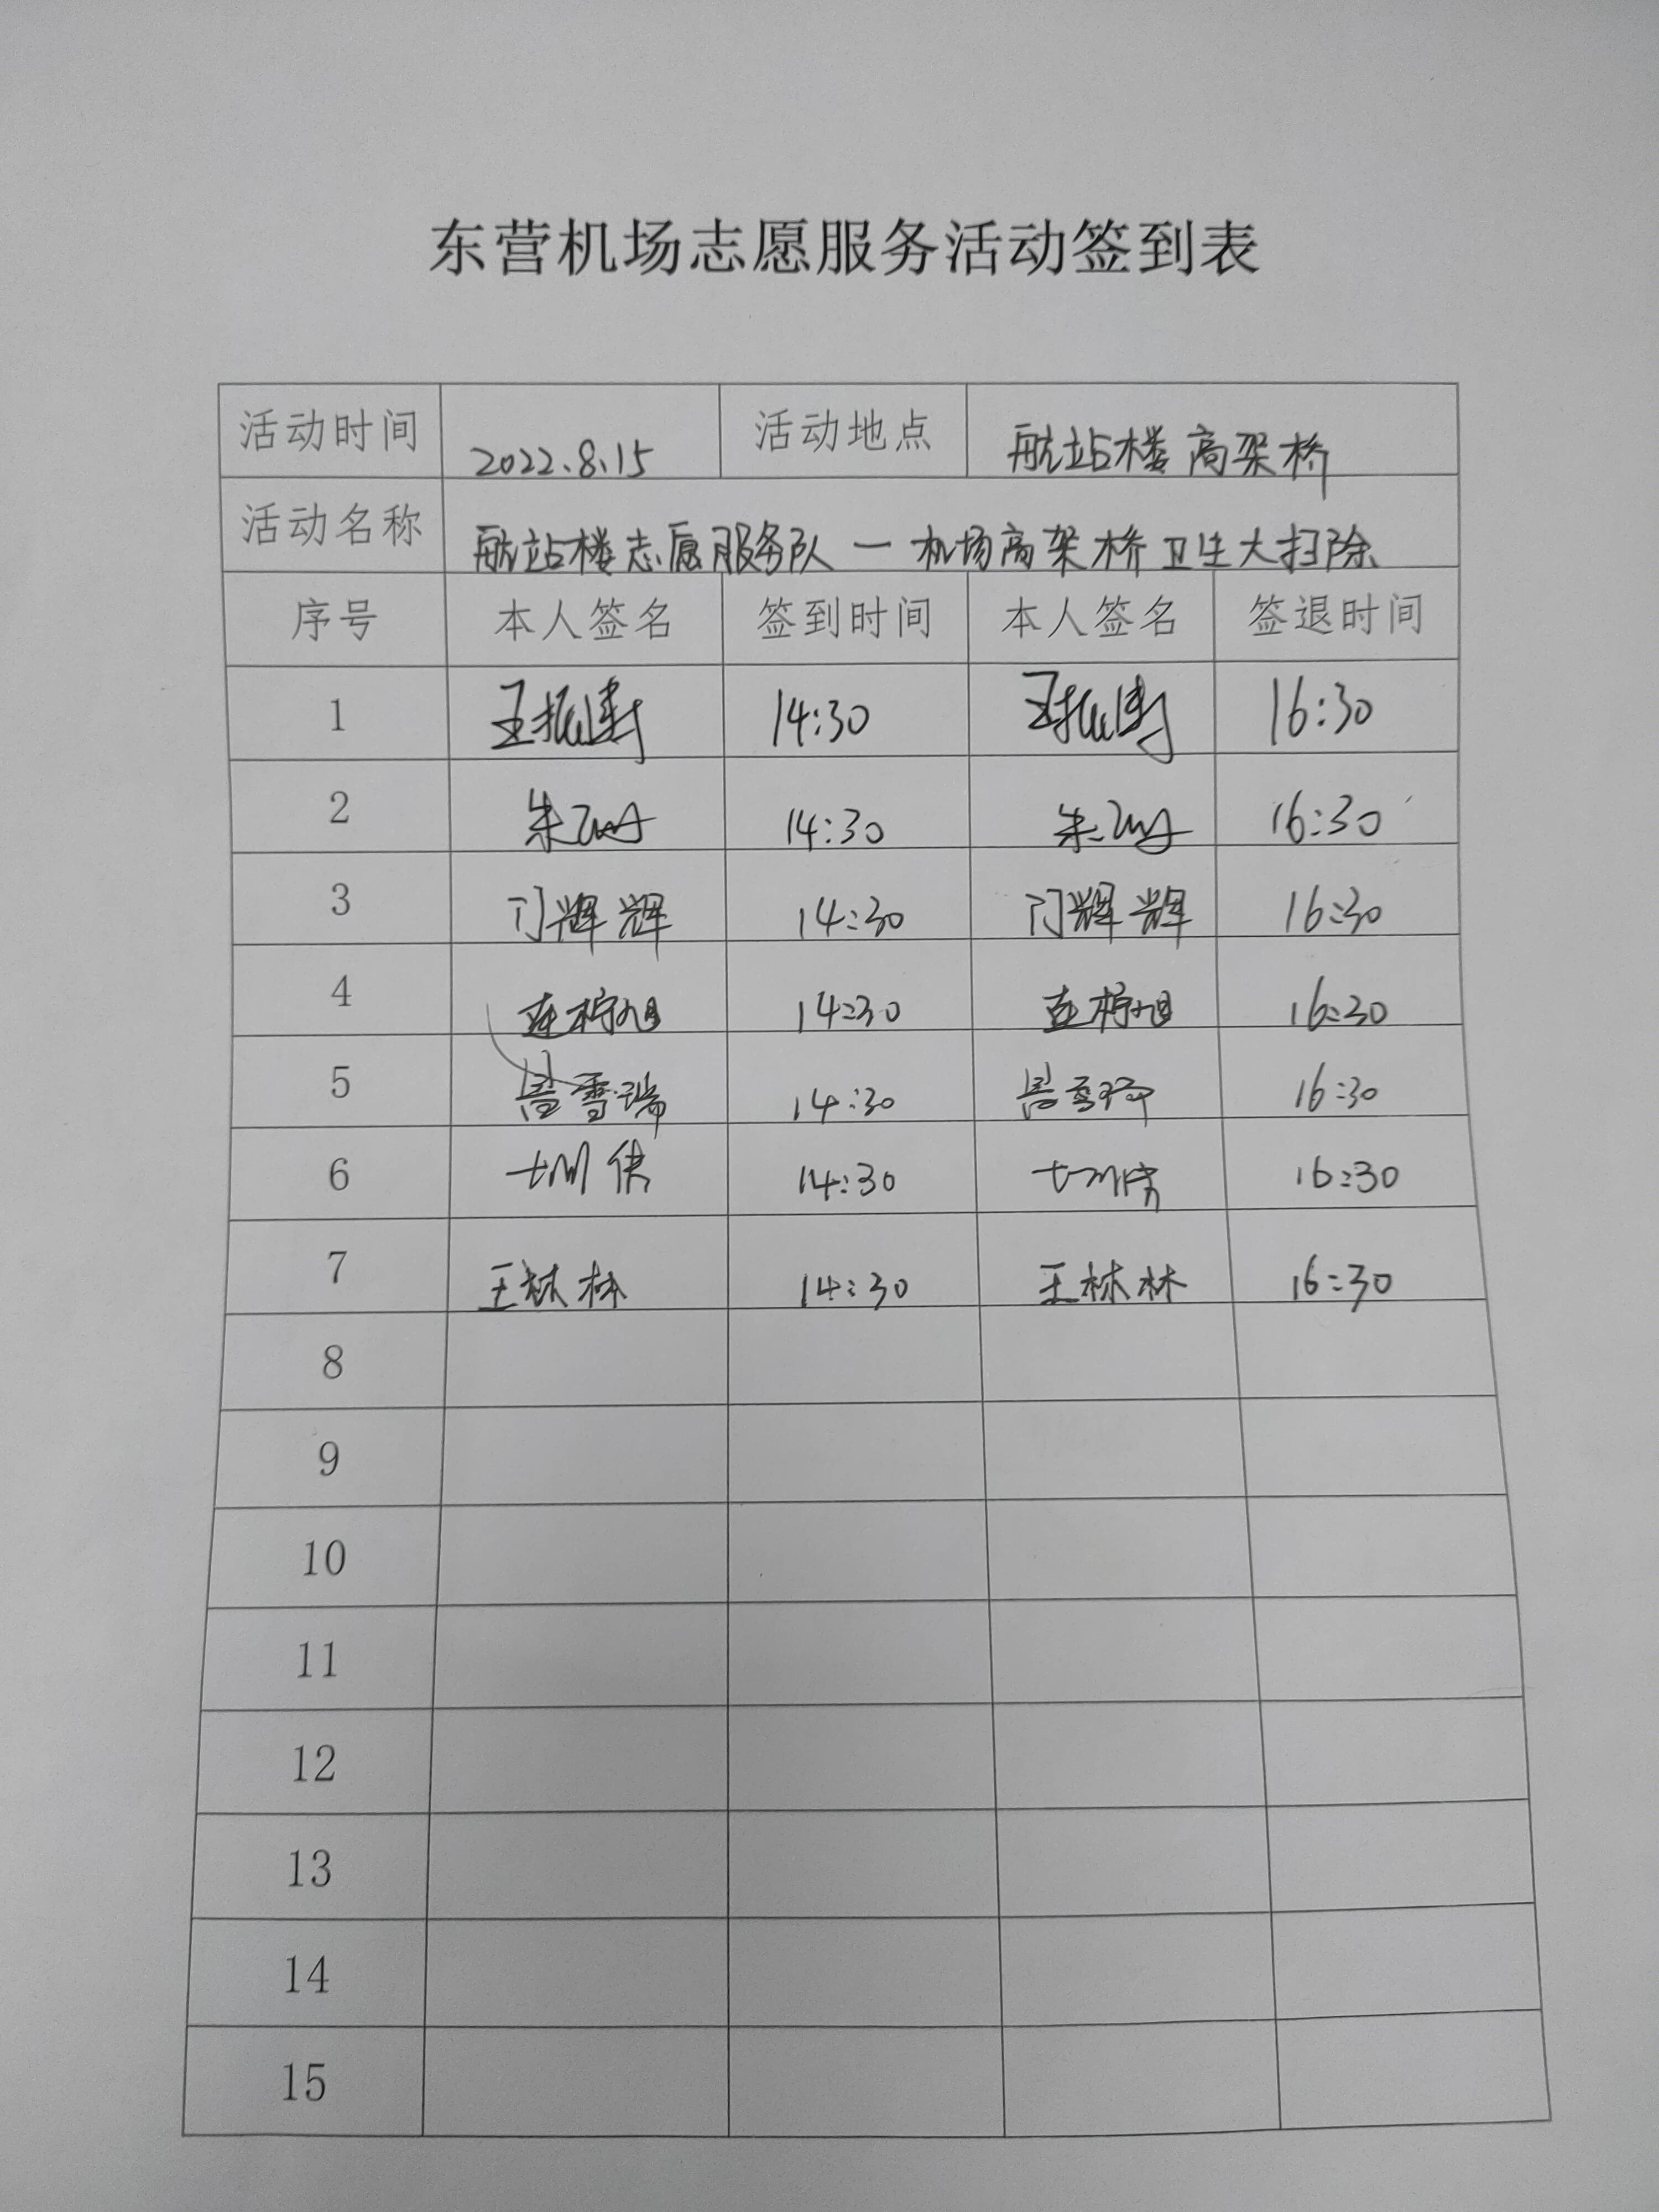 东营机场志愿服务活动签到表
活动时间 2022.8.15 活动地点 航站楼高架桥
活动名称 航站楼志愿服务队一机场高架桥卫生大扫除
序号 本人签名 签到时间 本人签名 签退时间
1 王振涛 14:30 王振涛 16:30
2 朱 14:30 朱 16:30
3 门辉辉 14:30 门辉辉 16:30
4 14:30 16:30
5 周雪瑞 14:30 周雪 16:30
6 14:30 16:30
7 王林林 14:30 王林林 16:30
8
9
10
11
12
13
14
15